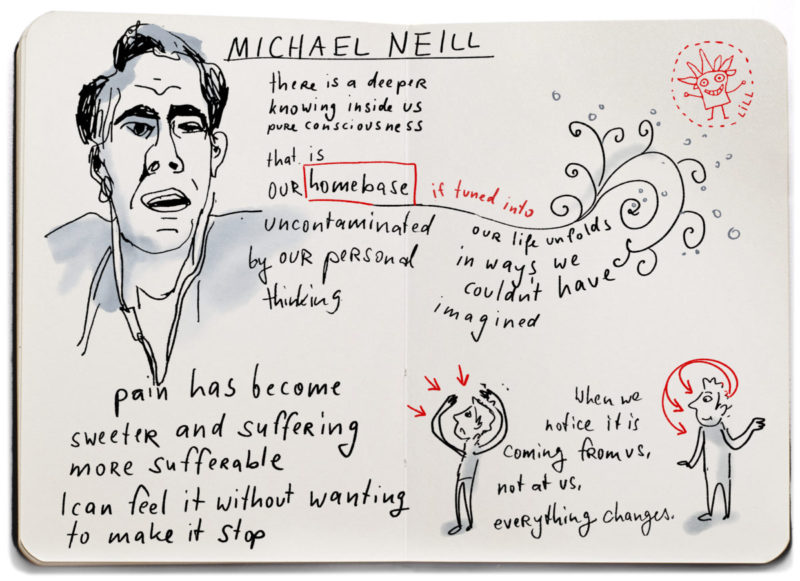 MICHAEL NEILL
there is a deeper
knowing inside us
pure consciousness
that is
our homebase
if tuned into
uncontaminated
by our personal
thinking
our life unfolds
in ways we
couldn't have
imagined
LILL
pain has become
sweeter and suffering
more sufferable
I can feel it without wanting
to make it stop
When we
notice it is
coming from us,
not at us,
everything changes.